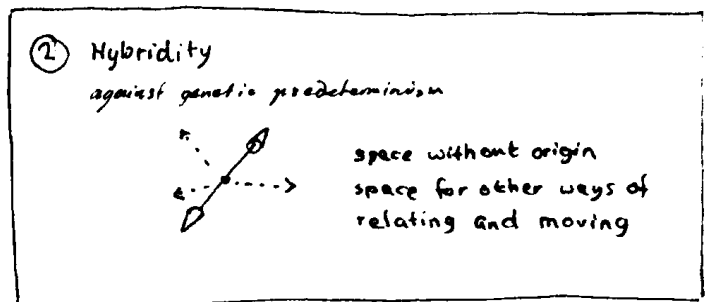 ② Hybridity
against genetic predeterminism
space without origin
space for other ways of
relating and moving